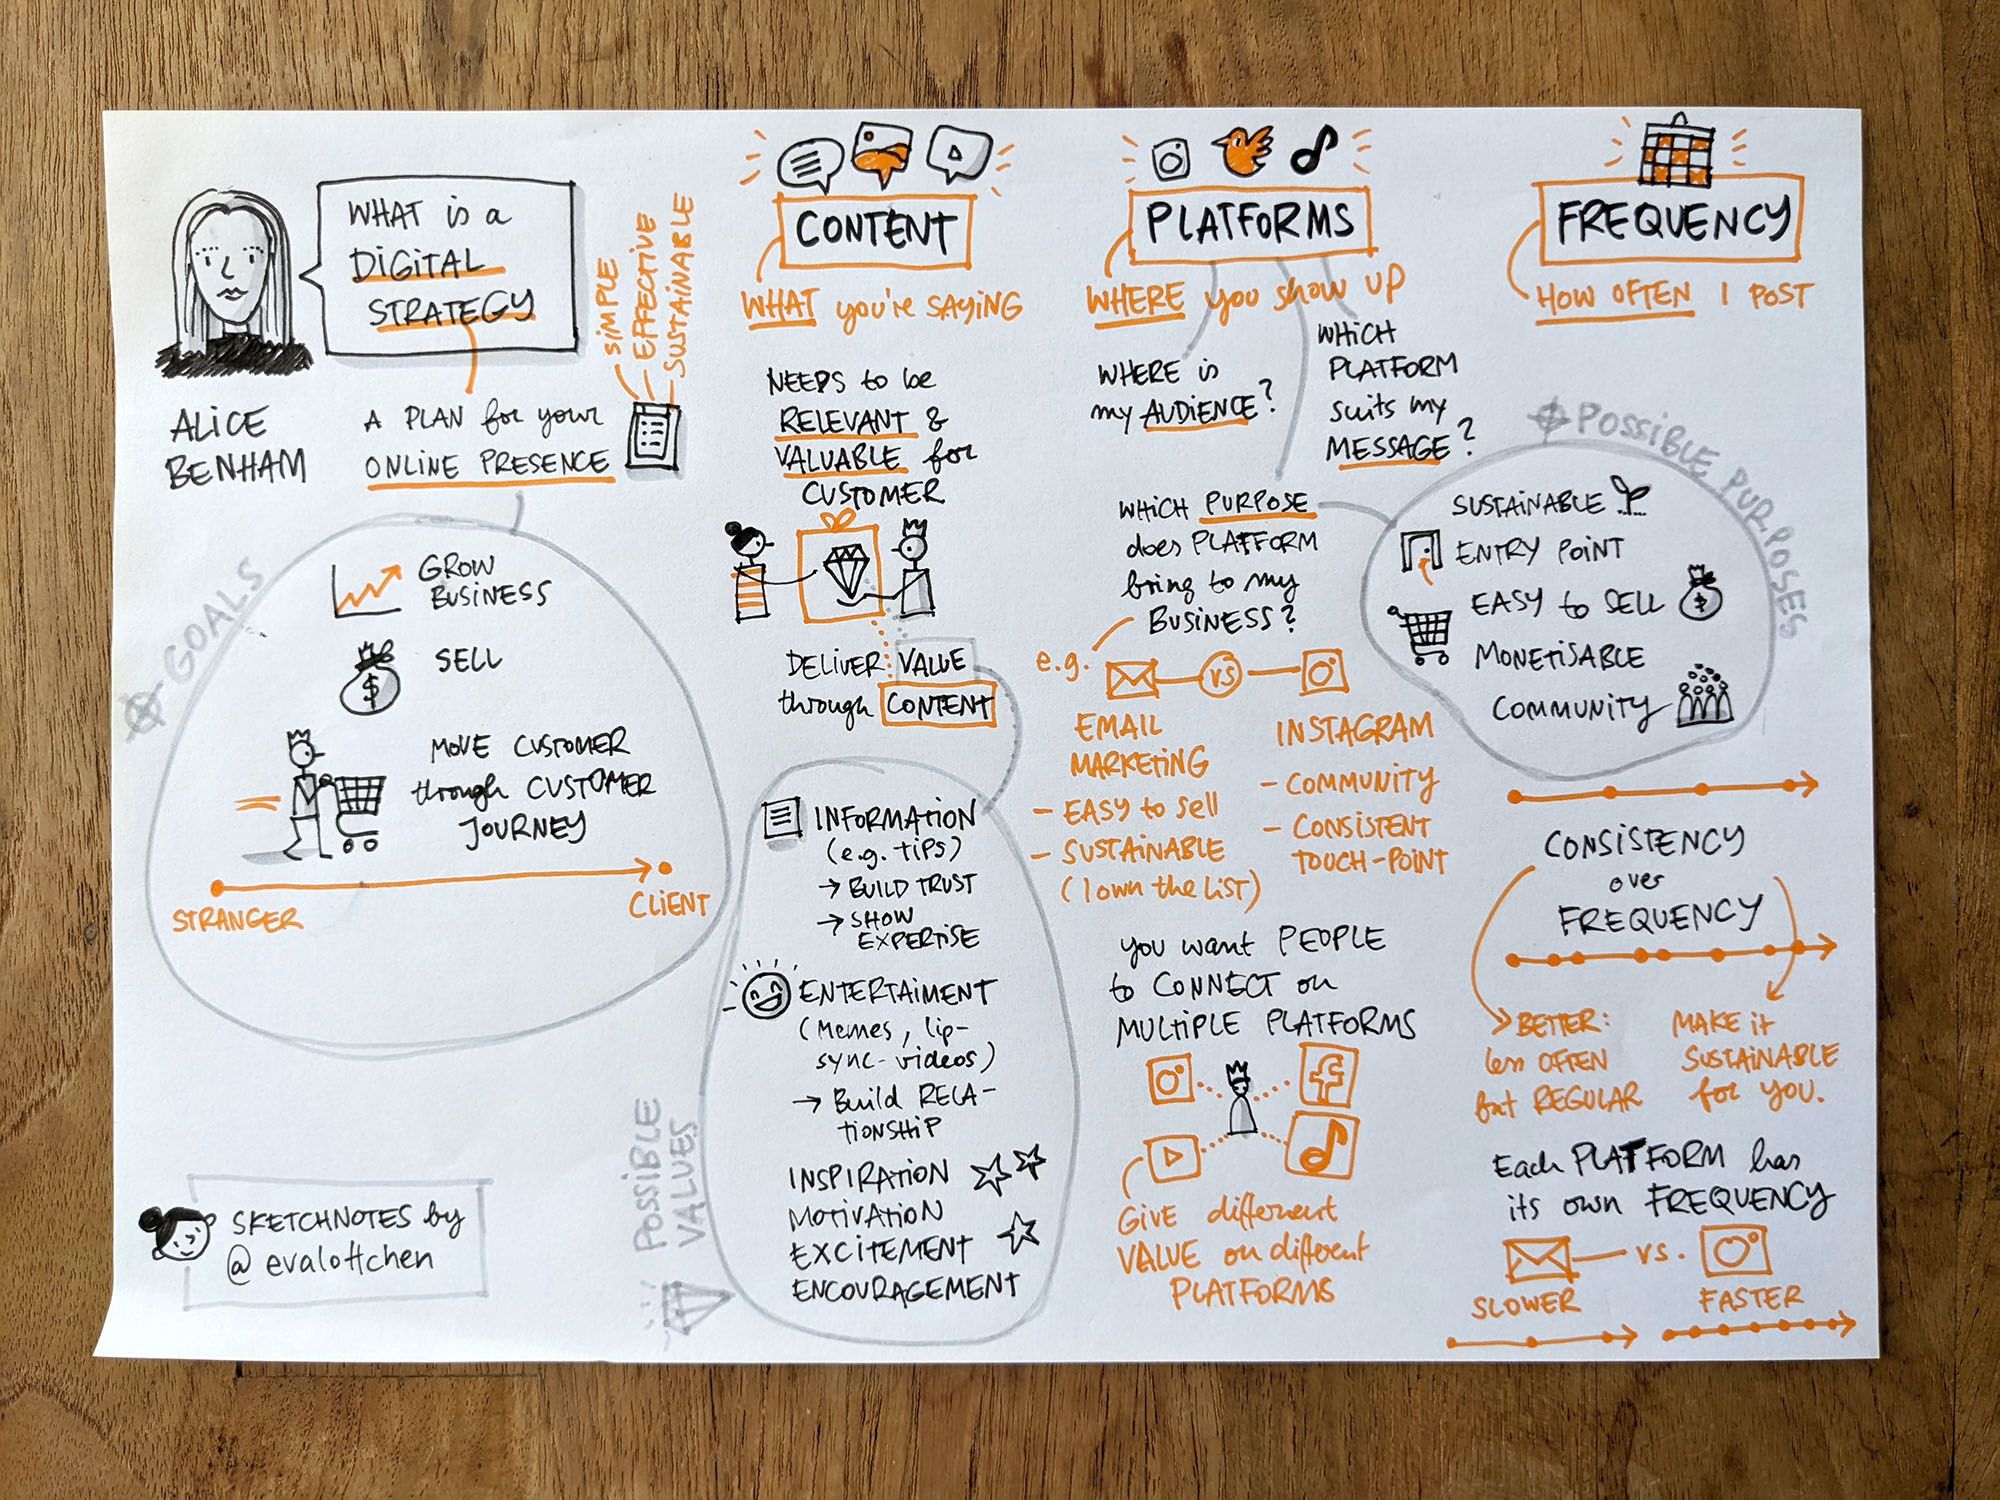 WHAT is a
DIGITAL
STRATEGY
SIMPLE
EFFECTIVE
SUSTAINABLE
ALICE
BENHAM
A PLAN for your
ONLINE PRESENCE
GOALS
GROW
BUSINESS
SELL
MOVE CUSTOMER
through CUSTOMER
JOURNEY
STRANGER
CLIENT
SKETCHNOTES by
@evalottchen
CONTENT
WHAT you're SAYING
NEEDS to be
RELEVANT &
VALUABLE for
CUSTOMER
DELIVER VALUE
through CONTENT
POSSIBLE
VALUES
INFORMATION
(e.g. TIPS)
→ BUILD TRUST
→ SHOW
EXPERTISE
ENTERTAIMENT
(Memes, lip-
sync-videos)
→ Build RELA-
TIONSHIP
INSPIRATION
MOTIVATION
EXCITEMENT
ENCOURAGEMENT
PLATFORMS
WHERE you show up
WHERE is
my AUDIENCE?
WHICH
PLATFORM
suits my
MESSAGE?
WHICH PURPOSE
does PLATFORM
bring to my
BUSINESS?
POSSIBLE PURPOSES
SUSTAINABLE
ENTRY POINT
EASY to SELL
$
MONETISABLE
COMMUNITY
e.g.
VS
EMAIL
MARKETING
- EASY to sell
- SUSTAINABLE
(I own the LIST)
INSTAGRAM
- COMMUNITY
- CONSISTENT
TOUCH-POINT
you want PEOPLE
to CONNECT on
MULTIPLE PLATFORMS
GIVE different
VALUE on different
PLATFORMS
FREQUENCY
HOW OFTEN I POST
CONSISTENCY
over
FREQUENCY
BETTER:
less OFTEN
but REGULAR
MAKE it
SUSTAINABLE
for YOU.
Each PLATFORM has
its own FREQUENCY
vs.
SLOWER
FASTER